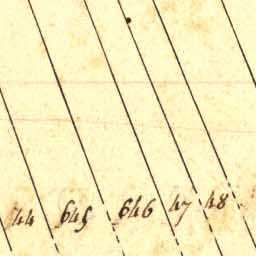 44 645 646 47 48